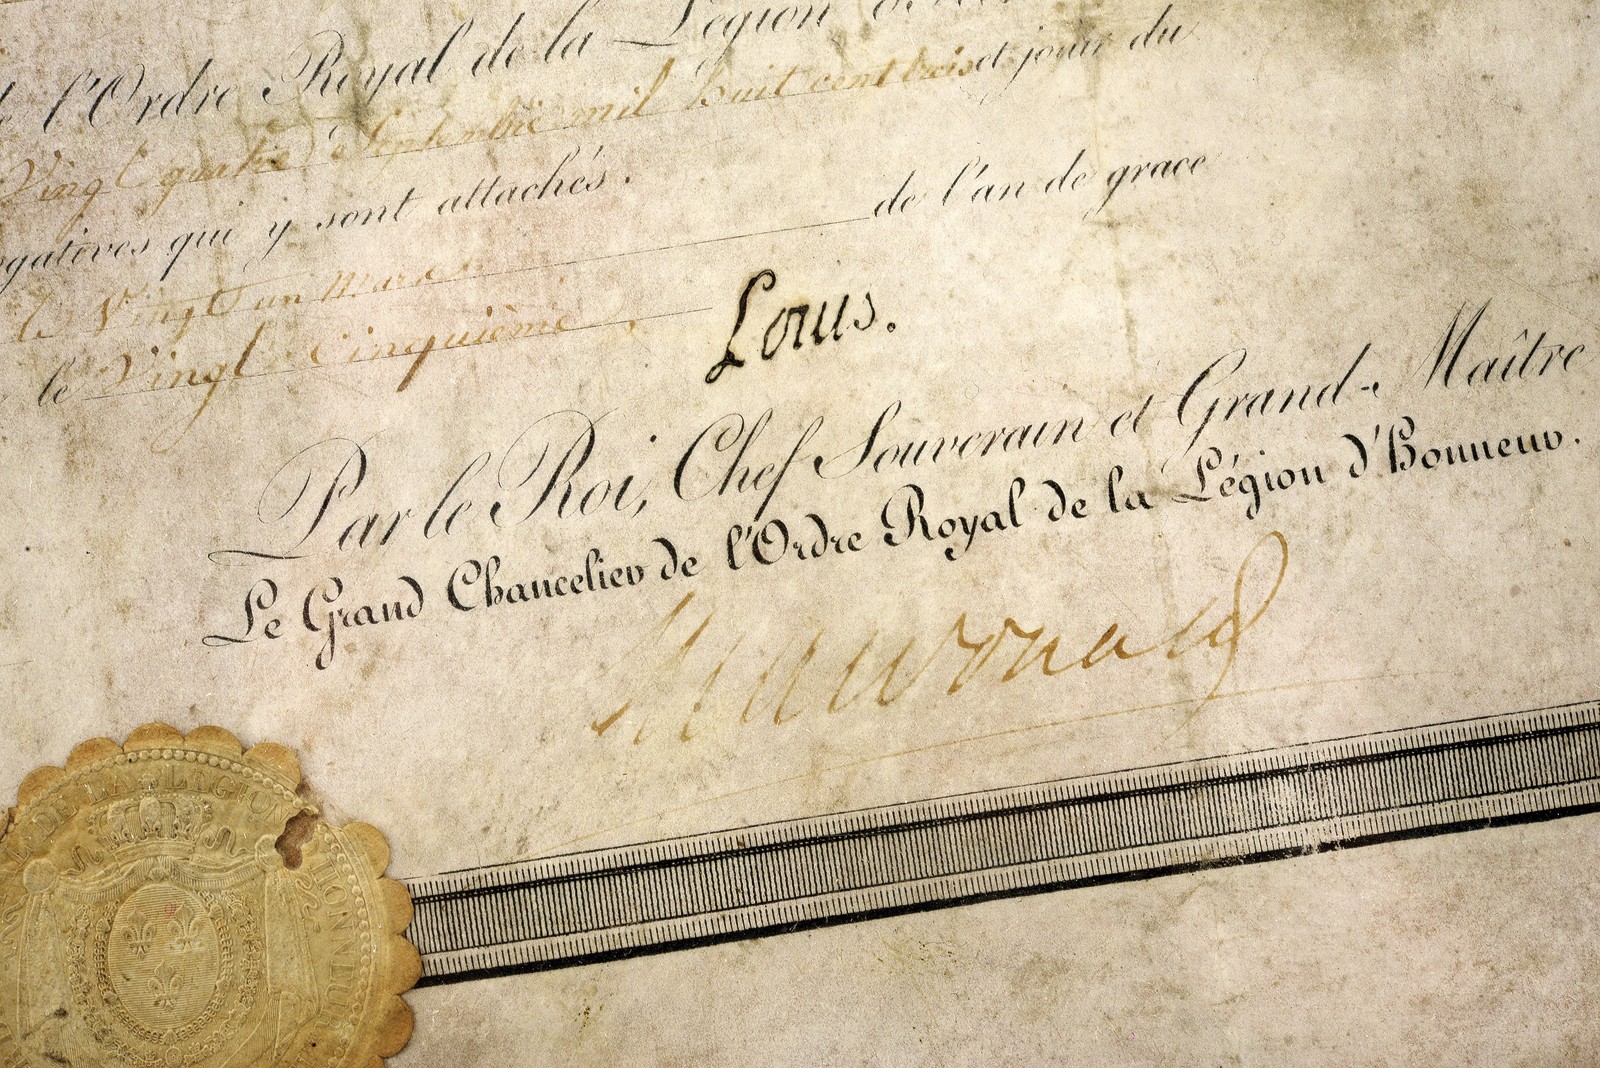 de l'Ordre Royal de la Légion
Vingt quatre Septembre mil huit cent trois et jouir du
qui y sont attachés.
de l'an de grace
le Vingt un Mars
le Vingt Cinquième
Louis.
Par le Roi, Chef Souverain et Grand-Maître
Le Grand Chancelier de l'Ordre Royal de la Légion d'Honneur.
Macdonald
DE LA LEGION D'HONNEUR